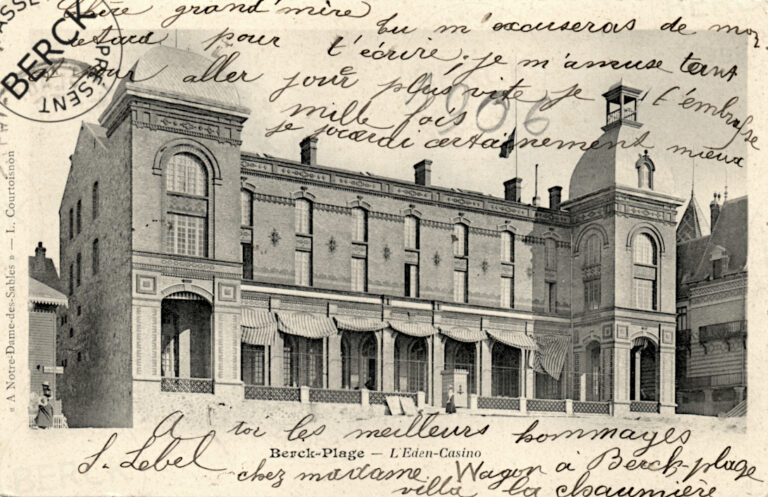 chère grand'mère tu m'excuseras de mon
retard pour t'écrire, je m'amuse tant
et pour aller jouer plus vite je t'embrasse
mille fois
je jouerai certainement mieux
1906
PASSE
BERCK
PRÉSENT
« A Notre-Dame-des-Sables » — L. Courtoisnon
A toi les meilleurs hommages
Berck-Plage — L'Eden-Casino
S. Lebel
chez madame Wagon à Berck-plage
villa la chaumière
BERCK